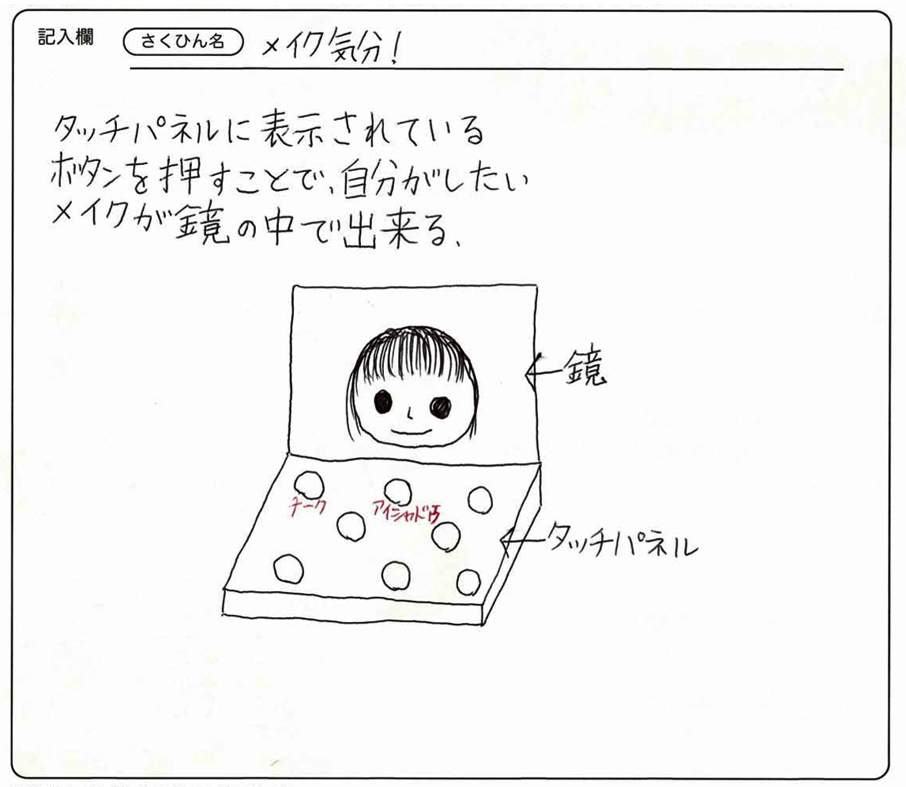 記入欄 さくひん名 メイク気分!
タッチパネルに表示されている
ボタンを押すことで、自分がしたい
メイクが鏡の中で出来る、
鏡
チーク アイシャドウ
タッチパネル